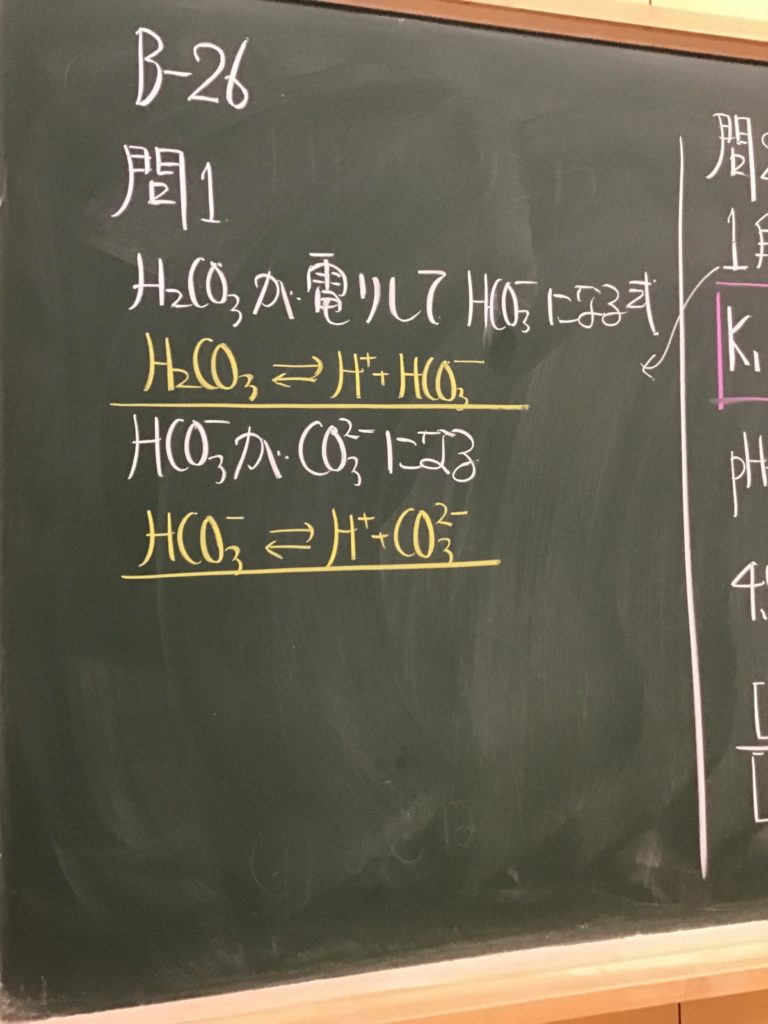 B-26
問1
H₂CO₃が電りして HCO₃⁻になる式
H₂CO₃ ⇄ H⁺ + HCO₃⁻
HCO₃⁻が CO₃²⁻になる
HCO₃⁻ ⇄ H⁺ + CO₃²⁻
問
1
K₁
pH
4.